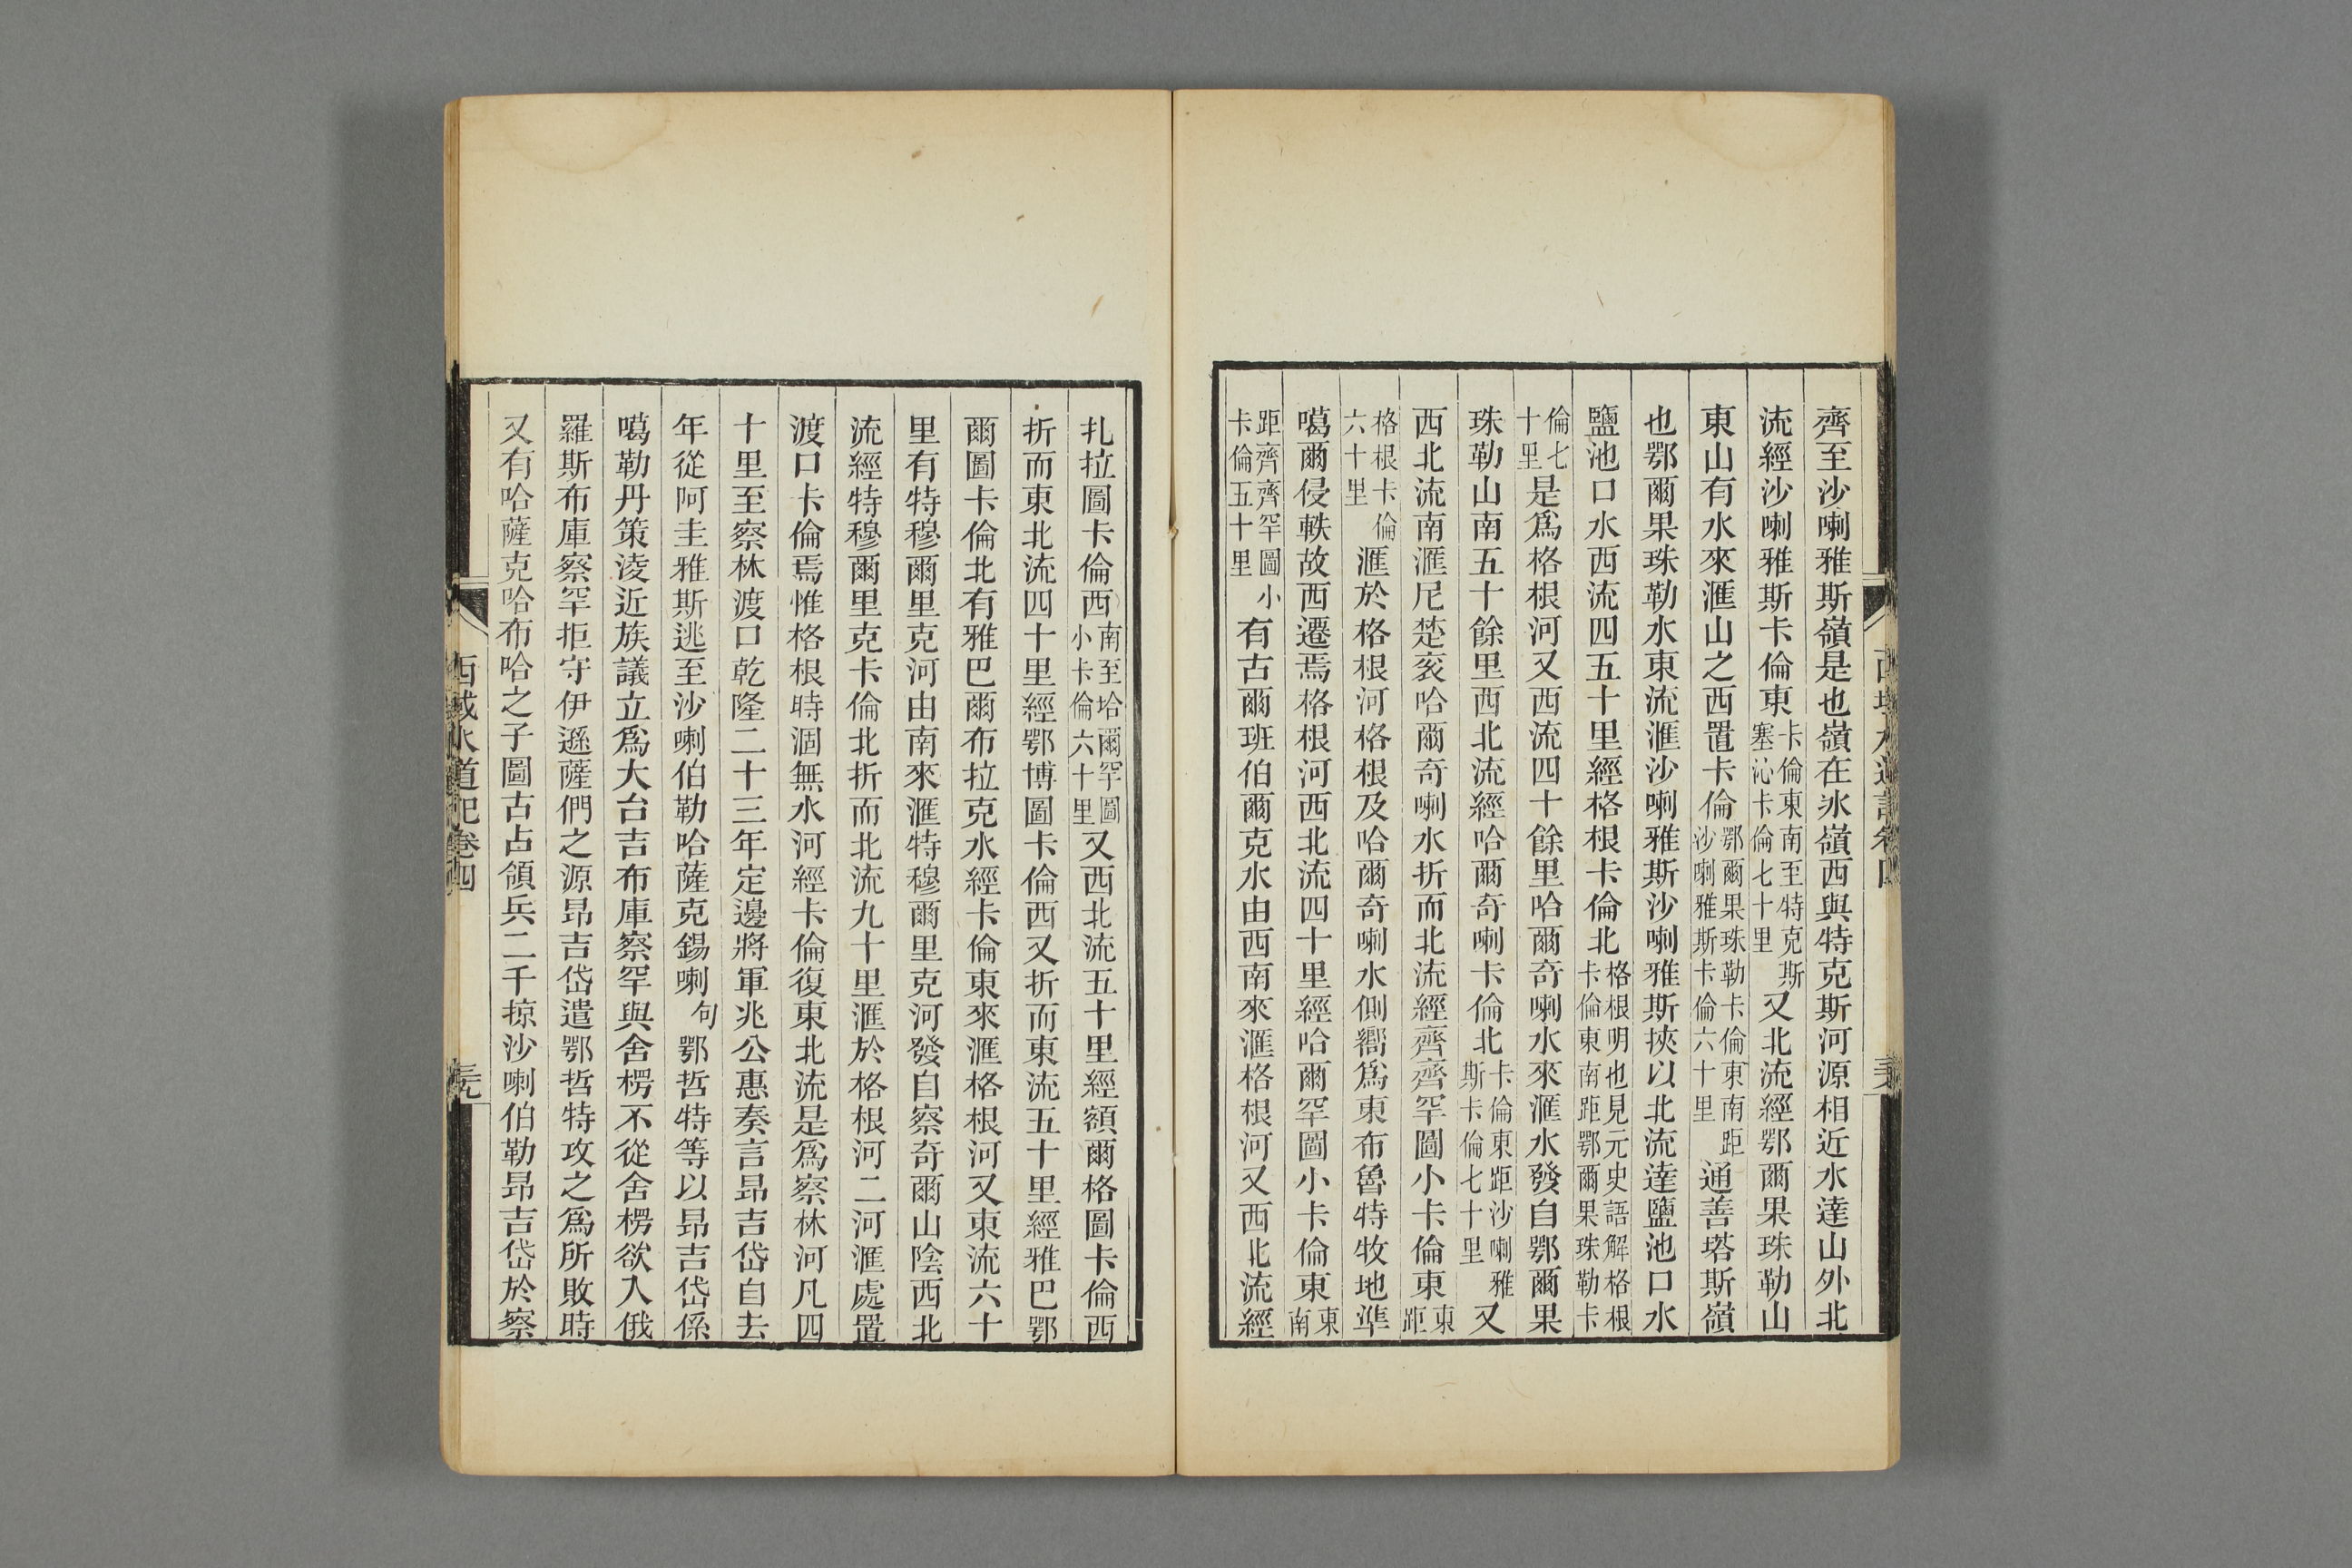 齊至沙喇雅斯嶺是也嶺在冰嶺西與特克斯河源相近水達山外北
流經沙喇雅斯卡倫東卡倫東南至特克斯塞沁卡倫七十里又北流經鄂爾果珠勒山
東山有水來滙山之西置卡倫鄂爾果珠勒卡倫東南距沙喇雅斯卡倫六十里通善塔斯嶺
也鄂爾果珠勒水東流滙沙喇雅斯沙喇雅斯挾以北流達鹽池口水
鹽池口水西流四五十里經格根卡倫北格根明也見元史語解格根卡倫東南距鄂爾果珠勒卡
倫七十里是爲格根河又西流四十餘里哈爾奇喇水來滙水發自鄂爾果
珠勒山南五十餘里西北流經哈爾奇喇卡倫北卡倫東距沙喇雅斯卡倫七十里又
西北流南滙尼楚衮哈爾奇喇水折而北流經齊齊罕圖小卡倫東東距
格根卡倫六十里滙於格根河格根及哈爾奇喇水側嚮爲東布魯特牧地準
噶爾侵軼故西遷焉格根河西北流四十里經哈爾罕圖小卡倫東東南
距齊齊罕圖小卡倫五十里有古爾班伯爾克水由西南來滙格根河又西北流經
扎拉圖卡倫西南至哈爾罕圖小卡倫六十里又西北流五十里經額爾格圖卡倫西
折而東北流四十里經鄂博圖卡倫西又折而東流五十里經雅巴鄂
爾圖卡倫北有雅巴爾布拉克水經卡倫東來滙格根河又東流六十
里有特穆爾里克河由南來滙特穆爾里克河發自察奇爾山陰西北
流經特穆爾里克卡倫北折而北流九十里滙於格根河二河滙處置
渡口卡倫焉惟格根時涸無水河經卡倫復東北流是爲察林河凡四
十里至察林渡口乾隆二十三年定邊將軍兆公惠奏言昂吉岱自去
年從阿圭雅斯逃至沙喇伯勒哈薩克錫喇句鄂哲特等以昂吉岱係
噶勒丹策淩近族議立爲大台吉布庫察罕與舍楞不從舍楞欲入俄
羅斯布庫察罕拒守伊遜薩們之源昂吉岱遣鄂哲特攻之爲所敗時
又有哈薩克哈布哈之子圖古占領兵二千掠沙喇伯勒昂吉岱於察
西域水道記卷四